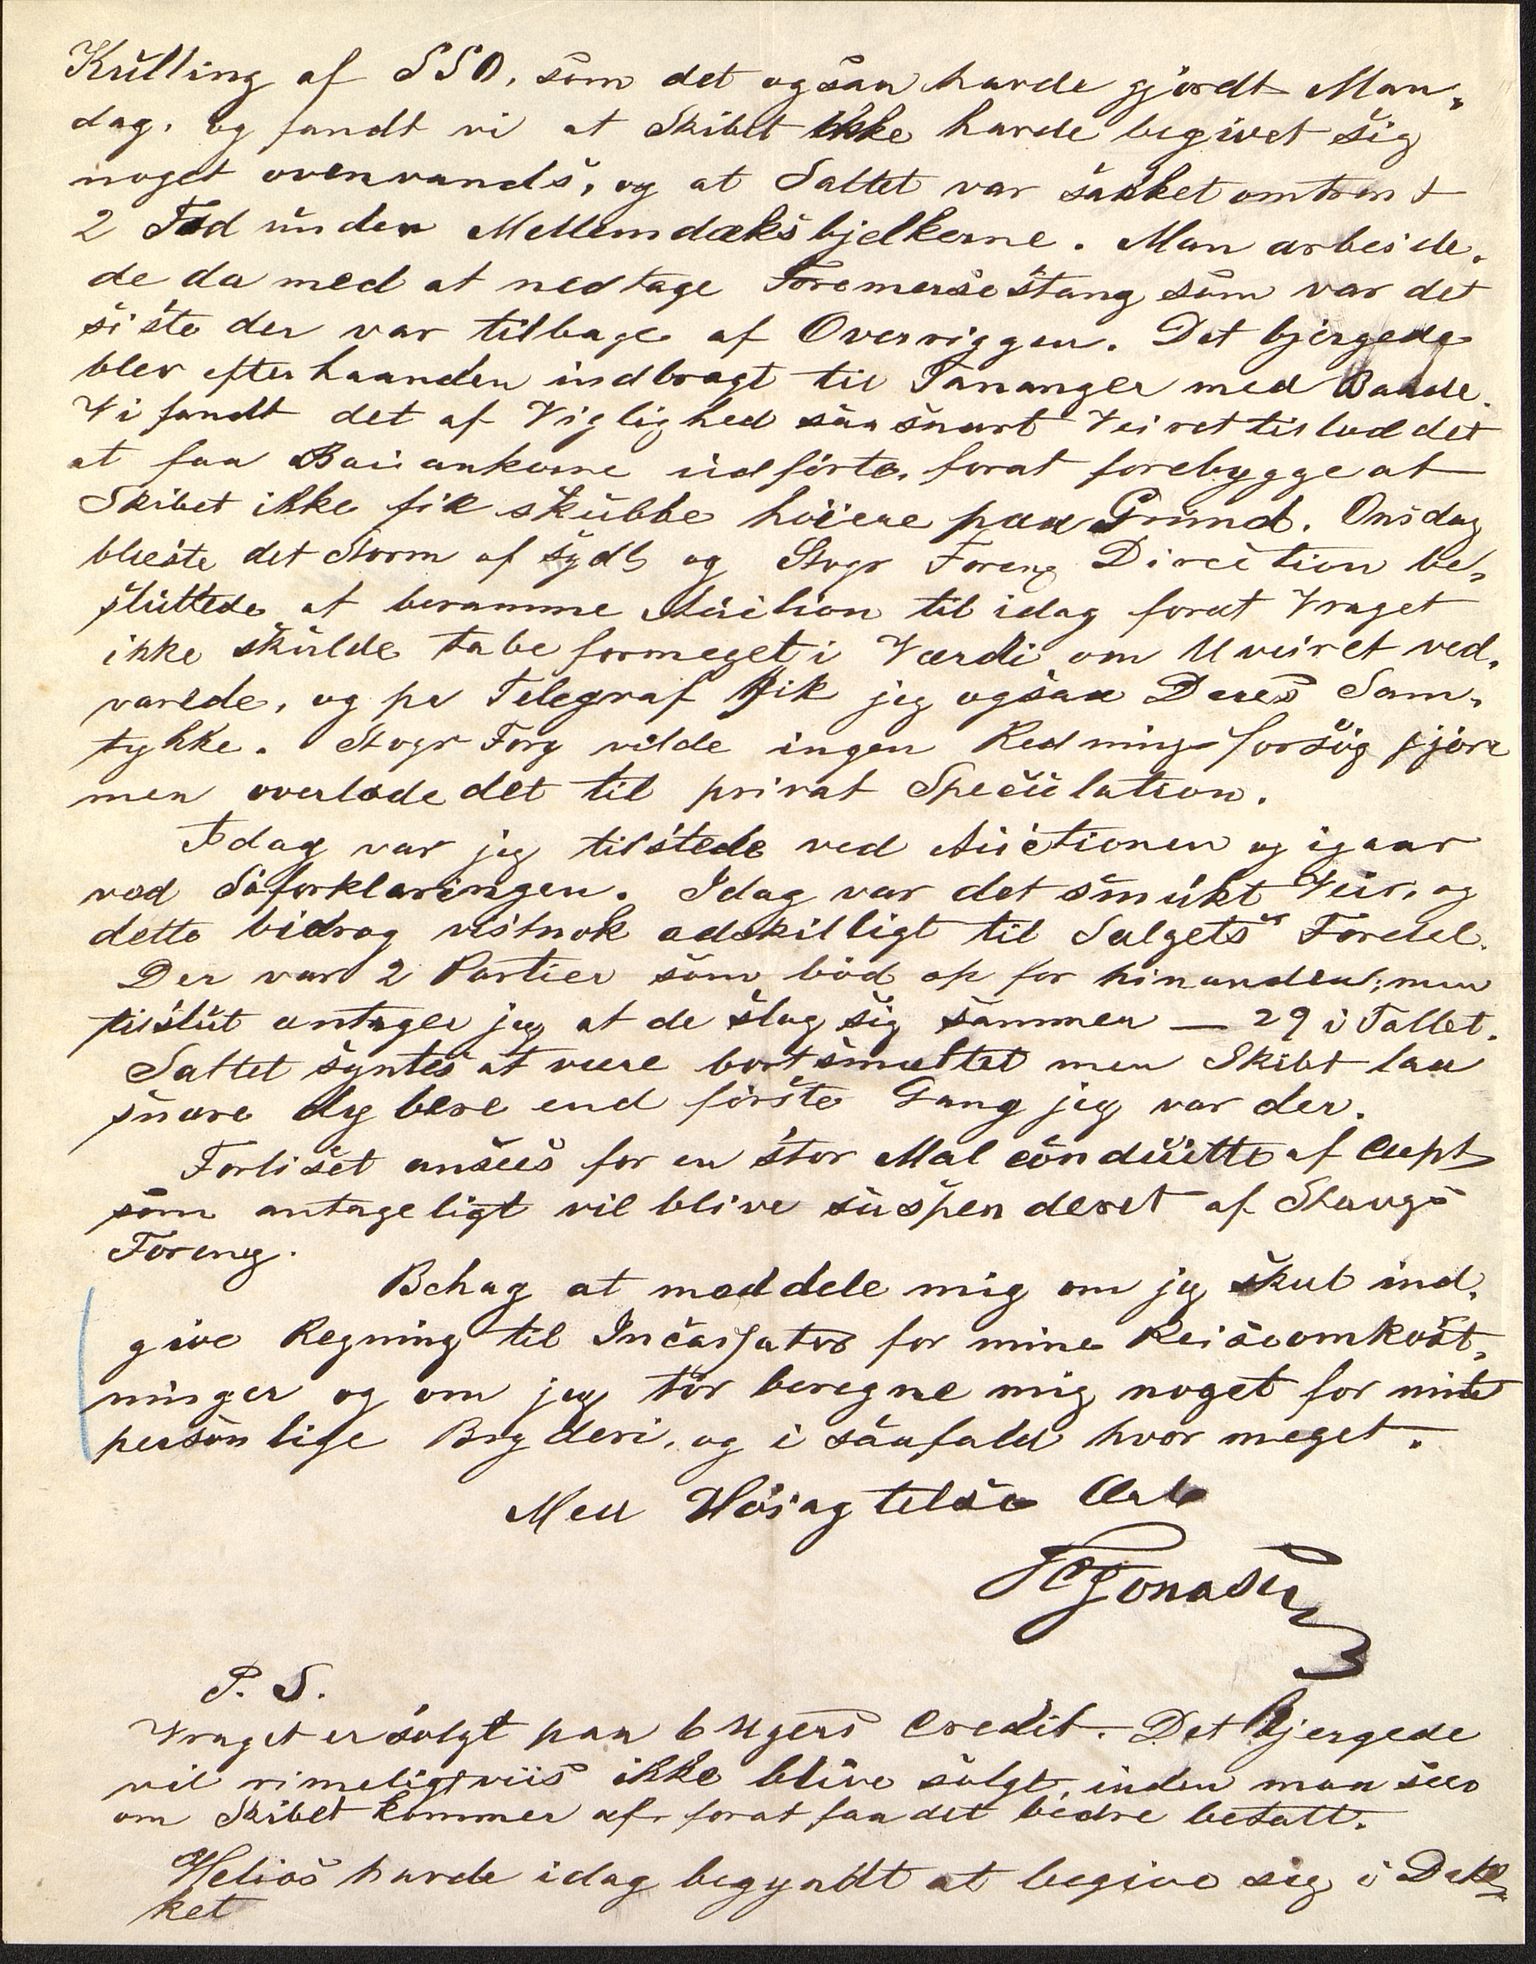 Kulling af SSO. som det ogsaa havde gjördt Man-
dag. og fandt vi at Skibet ikke havde begivet sig
noget ovenvands, og at Saltet var sunket omtrent
2 Fod under Mellemdæksbjelkerne. Man arbeide-
de da med at nedtage Foremersestang som var det
siste der var tilbage af Overriggen. Det bjergede
blev efterhaanden indbragt til Tananger med Baade.
Vi fandt det af Vigtighed saasnart Veiret tillod det
at faa Bauankerne udförte, forat forebygge at
Skibet ikke fik skubbe höiere paa Grund. Onsdag
blæste det Storm af syd og Stvgr Foreng Direction be-
sluttede at beramme Auction til idag forat Vraget
ikke skulde tabe formeget i Værdi om Uveiret ved-
varede, og pr Telegraf fik jeg ogsaa Deres Sam-
tykke. Stvgr Forg vilde ingen Redningsforsög gjöre
men overlode det til privat Speculation.
Idag var jeg tilstede ved Auctionen og igaar
ved Söforklaringen. Idag var det smukt Veir, og
dette bidrog vistnok adskilligt til Salgets Fordel.
Der var 2 Partier som böd op for hinanden, men
tilslut antager jeg at de slog sig sammen — 29 i Tallet.
Saltet syntes at være bortsmeltet men Skibet laa
snare dybere end förste Gang jeg var der.
Forliset ansees for en stor Mal conduitte af Capt
som antageligt vil blive suspenderet af Stavgs
Foreng.
Behag at meddele mig om jeg skal ind-
give Regning til Incassator for mine Reiseomkost-
ninger og om jeg tör beregne mig noget for mit
personlige Bryderi, og i saafald hvor meget.
Med Höiagtelse Erb
Jonasen
P. S.
Vraget er solgt paa 6 Ugers Credit. Det bjergede
vil rimeligtviis ikke blive solgt, inden man seer
om Skibet kommer af, forat faa det bedre betalt.
Helios havde idag begyndt at begive sig i Dæk-
ket